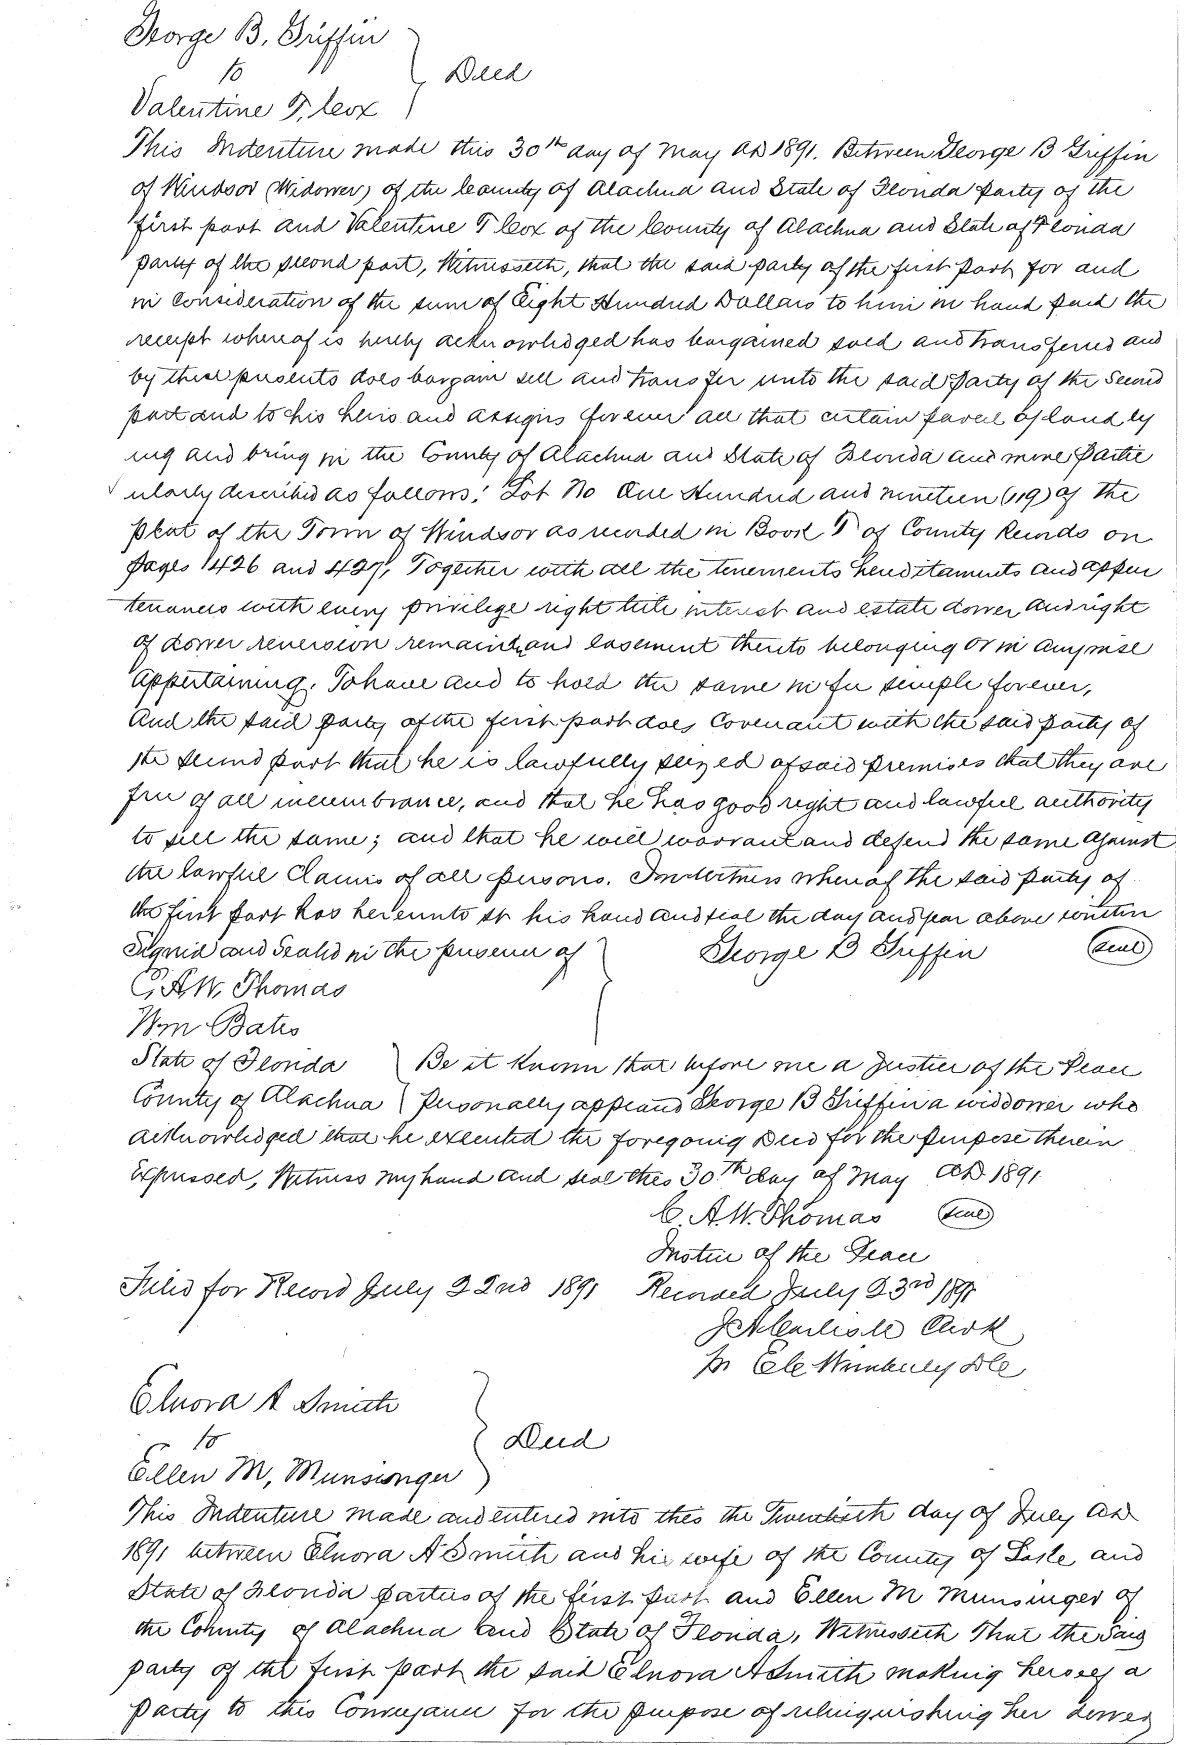 George B. Griffin
to
Deed
Valentine T. Cox
This Indenture made this 30th day of May AD 1891. Between George B Griffin
of Windsor (Widower) of the County of Alachua and State of Florida Party of the
first part and Valentine T Cox of the County of Alachua and State of Florida
party of the second part, Witnesseth, that the said party of the first part for and
in consideration of the sum of Eight Hundred Dollars to him in hand paid the
receipt whereof is hereby acknowledged has bargained sold and transferred and
by these presents does bargain sell and transfer unto the said Party of the Second
part and to his heirs and assigns forever all that certain parcel of land ly
ing and being in the County of Alachua and State of Florida and more Partic
ularly described as follows: Lot No One Hundred and nineteen (119) of the
plat of the Town of Windsor as recorded in Book T of County Records on
pages 426 and 427, Together with all the tenements hereditaments and appur
tenances with every privilege right title interest and estate dower and right
of dower reversion remainder and easement thereto belonging or in anywise
appertaining. To have and to hold the same in fee simple forever,
And the said party of the first part does Covenant with the said party of
the second part that he is lawfully seized of said premises that they are
free of all incumbrance, and that he has good right and lawful authority
to sell the same; and that he will warrant and defend the same against
the lawful Claims of all persons. In witness whereof the said party of
the first part has hereunto set his hand and seal the day and year above written
Signed and Sealed in the presence of
George B Griffin (seal)
C. A. W. Thomas
Wm Bates
State of Florida Be it known that before me a Justice of the Peace
County of Alachua personally appeared George B Griffin a widdower who
acknowledged that he executed the foregoing Deed for the purpose therein
Expressed, Witness my hand and seal this 30th day of May AD 1891
C. A. W. Thomas (seal)
Justice of the Peace
Filed for Record July 22nd 1891 Recorded July 23rd 1891
J A Carlisle Clerk
Wimberly DC
Elnora A Smith
to
Deed
Ellen M. Munsinger
This Indenture made and entered into this the Twentieth day of July AD
1891 between Elnora A Smith and his wife of the County of and
State of Florida parties of the first part and Ellen M Munsinger of
the County of Alachua and State of Florida, Witnesseth That the Said
party of the first part the said Elnora A Smith making herself a
party to this Conveyance for the purpose of relinquishing her dower